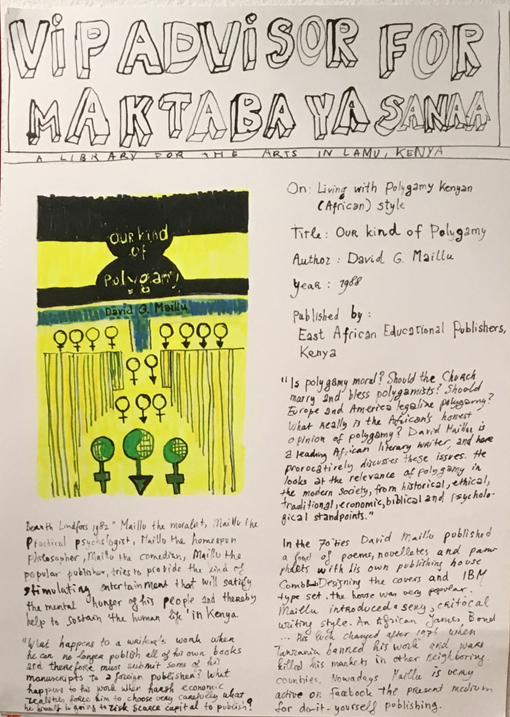 VIP ADVISOR FOR
MAKTABA YA SANAA
A LIBRARY FOR THE ARTS IN LAMU, KENYA
OUR kind
OF
Polygamy
David G. Maillu
On: Living with Polygamy Kenyan
(African) style
Title: OUR kind of Polygamy
Author: David G. Maillu
Year: 1988
Published by:
East African Educational Publishers,
Kenya
"Is polygamy moral? Should the Church
marry and bless polygamists? Should
Europe and America legalise polygamy?
What Really is the African's honest
opinion of polygamy? David Maillu is
a leading African literary writer and here
provocatively discusses these issues. He
looks at the relevance of polygamy in
the modern society, from historical, ethical,
traditional, economic, biblical and psycholo-
gical standpoints."
Lindfors 1982 "Maillu the moralist, Maillu the
Practical psychologist, Maillu the homespun
philosopher, Maillu the comedian, Maillu the
popular publisher, tries to provide the kind of
stimulating entertainment that will satisfy
the mental hunger of his people and thereby
help to sustain the human life' in Kenya
"What happens to a writer's work when
he can no longer publish all of his own books
and therefore must submit some of his
manuscripts to a foreign publisher? What
happens to his work when harsh economic
realities force him to choose very carefully what
he is going to risk scarce capital to publish?
In the 70ties David Maillu published
a of poems, novelletes and pam
phlets with his own publishing house
Comb Designing the covers and IBM
type set. the house was very popular.
Maillu introduced a sexy, critical
writing style. An African James Bond
... his luck changed after 1976 when
Tanzania banned his work and
killed his markets in other neighboring
countries. Nowadays Maillu is very
active on facbook the present medium
for do-it-yourself publishing.